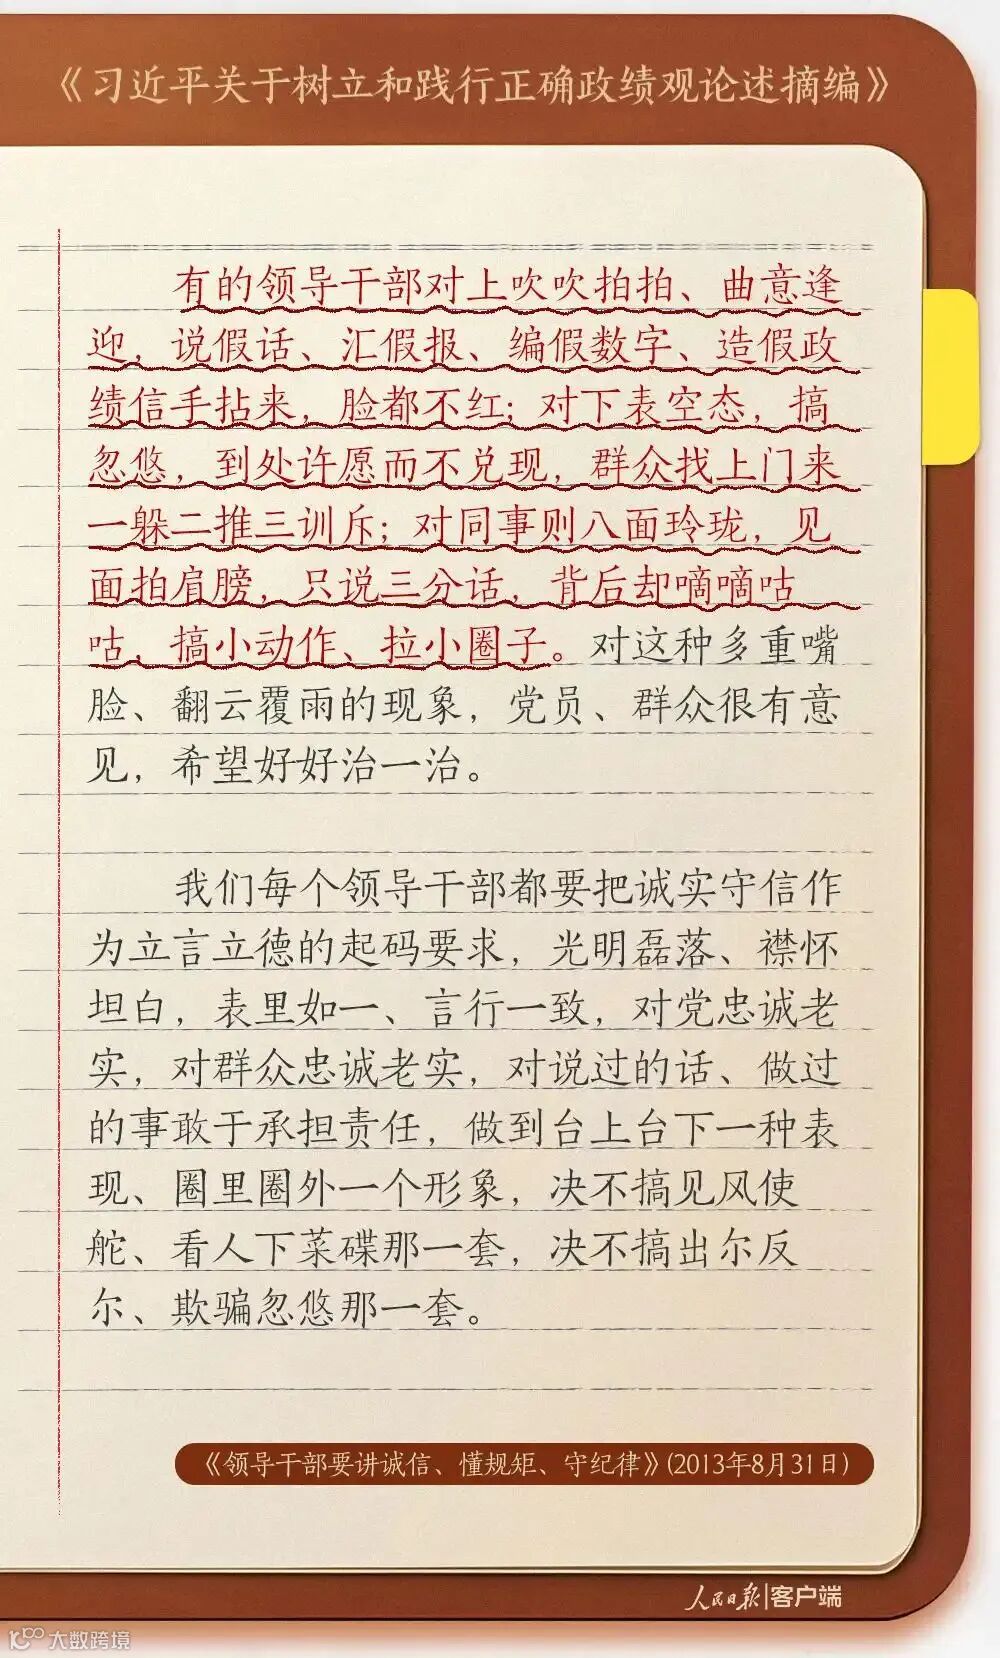 《习近平关于树立和践行正确政绩观论述摘编》
有的领导干部对上吹吹拍拍、曲意逢
迎，说假话、汇假报、编假数字、造假政
绩信手拈来，脸都不红；对下表空态，搞
忽悠，到处许愿而不兑现，群众找上门来
一躲二推三训斥；对同事则八面玲珑，见
面拍肩膀，只说三分话，背后却嘀嘀咕
咕，搞小动作、拉小圈子。对这种多重嘴
脸、翻云覆雨的现象，党员、群众很有意
见，希望好好治一治。
我们每个领导干部都要把诚实守信作
为立言立德的起码要求，光明磊落、襟怀
坦白，表里如一、言行一致，对党忠诚老
实，对群众忠诚老实，对说过的话、做过
的事敢于承担责任，做到台上台下一种表
现、圈里圈外一个形象，决不搞见风使
舵、看人下菜碟那一套，决不搞出尔反
尔、欺骗忽悠那一套。
《领导干部要讲诚信、懂规矩、守纪律》(2013年8月31日)
人民日报|客户端
大数跨境